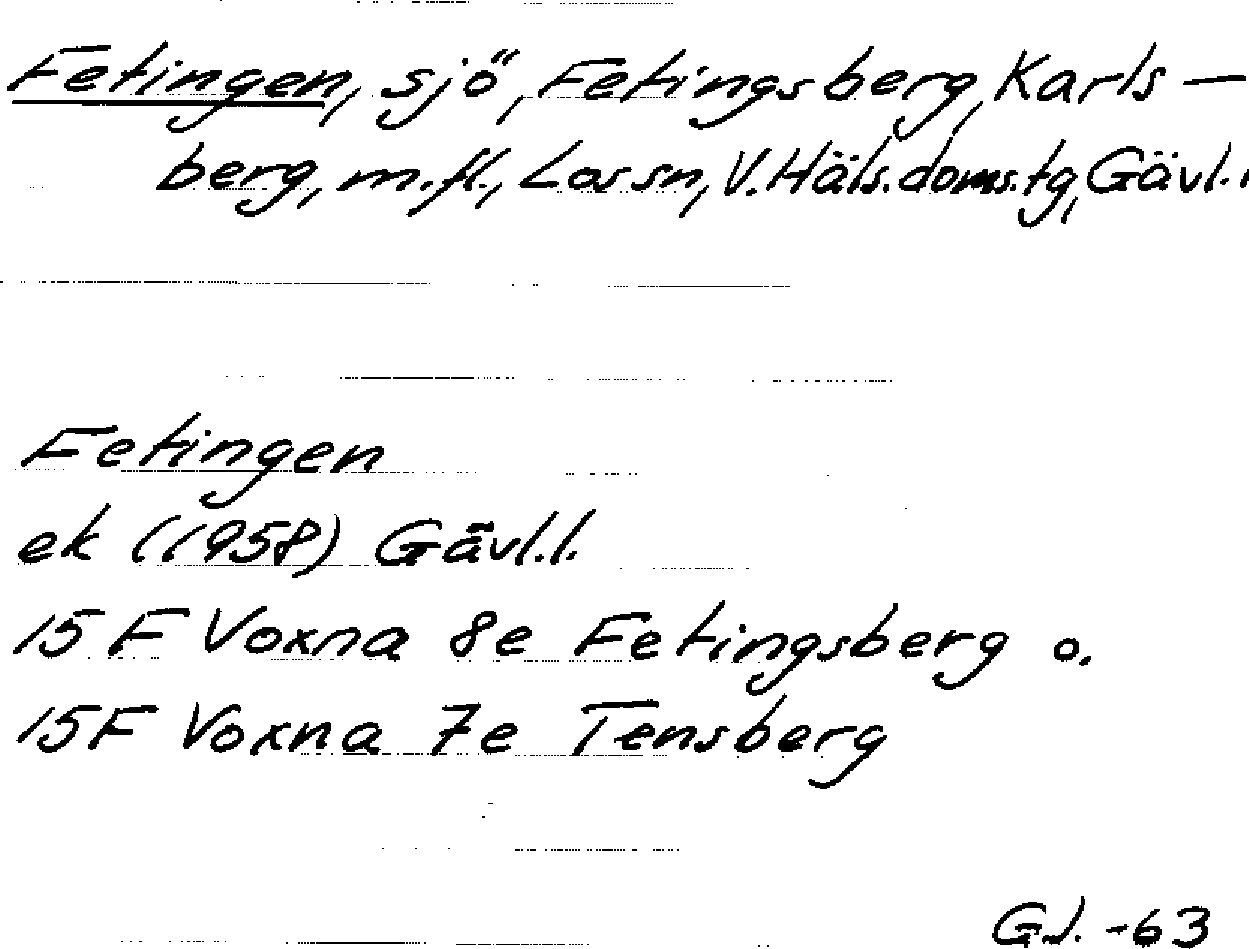 Fetingen, sjö, Fetingsberg, Karls-
berg, m.fl., Los sn, V. Häls. doms. tg, Gävl. l
Fetingen
ek (1958) Gävl. l.
15 F Voxna 8e Fetingsberg o.
15F Voxna 7e Tensberg
GJ. -63